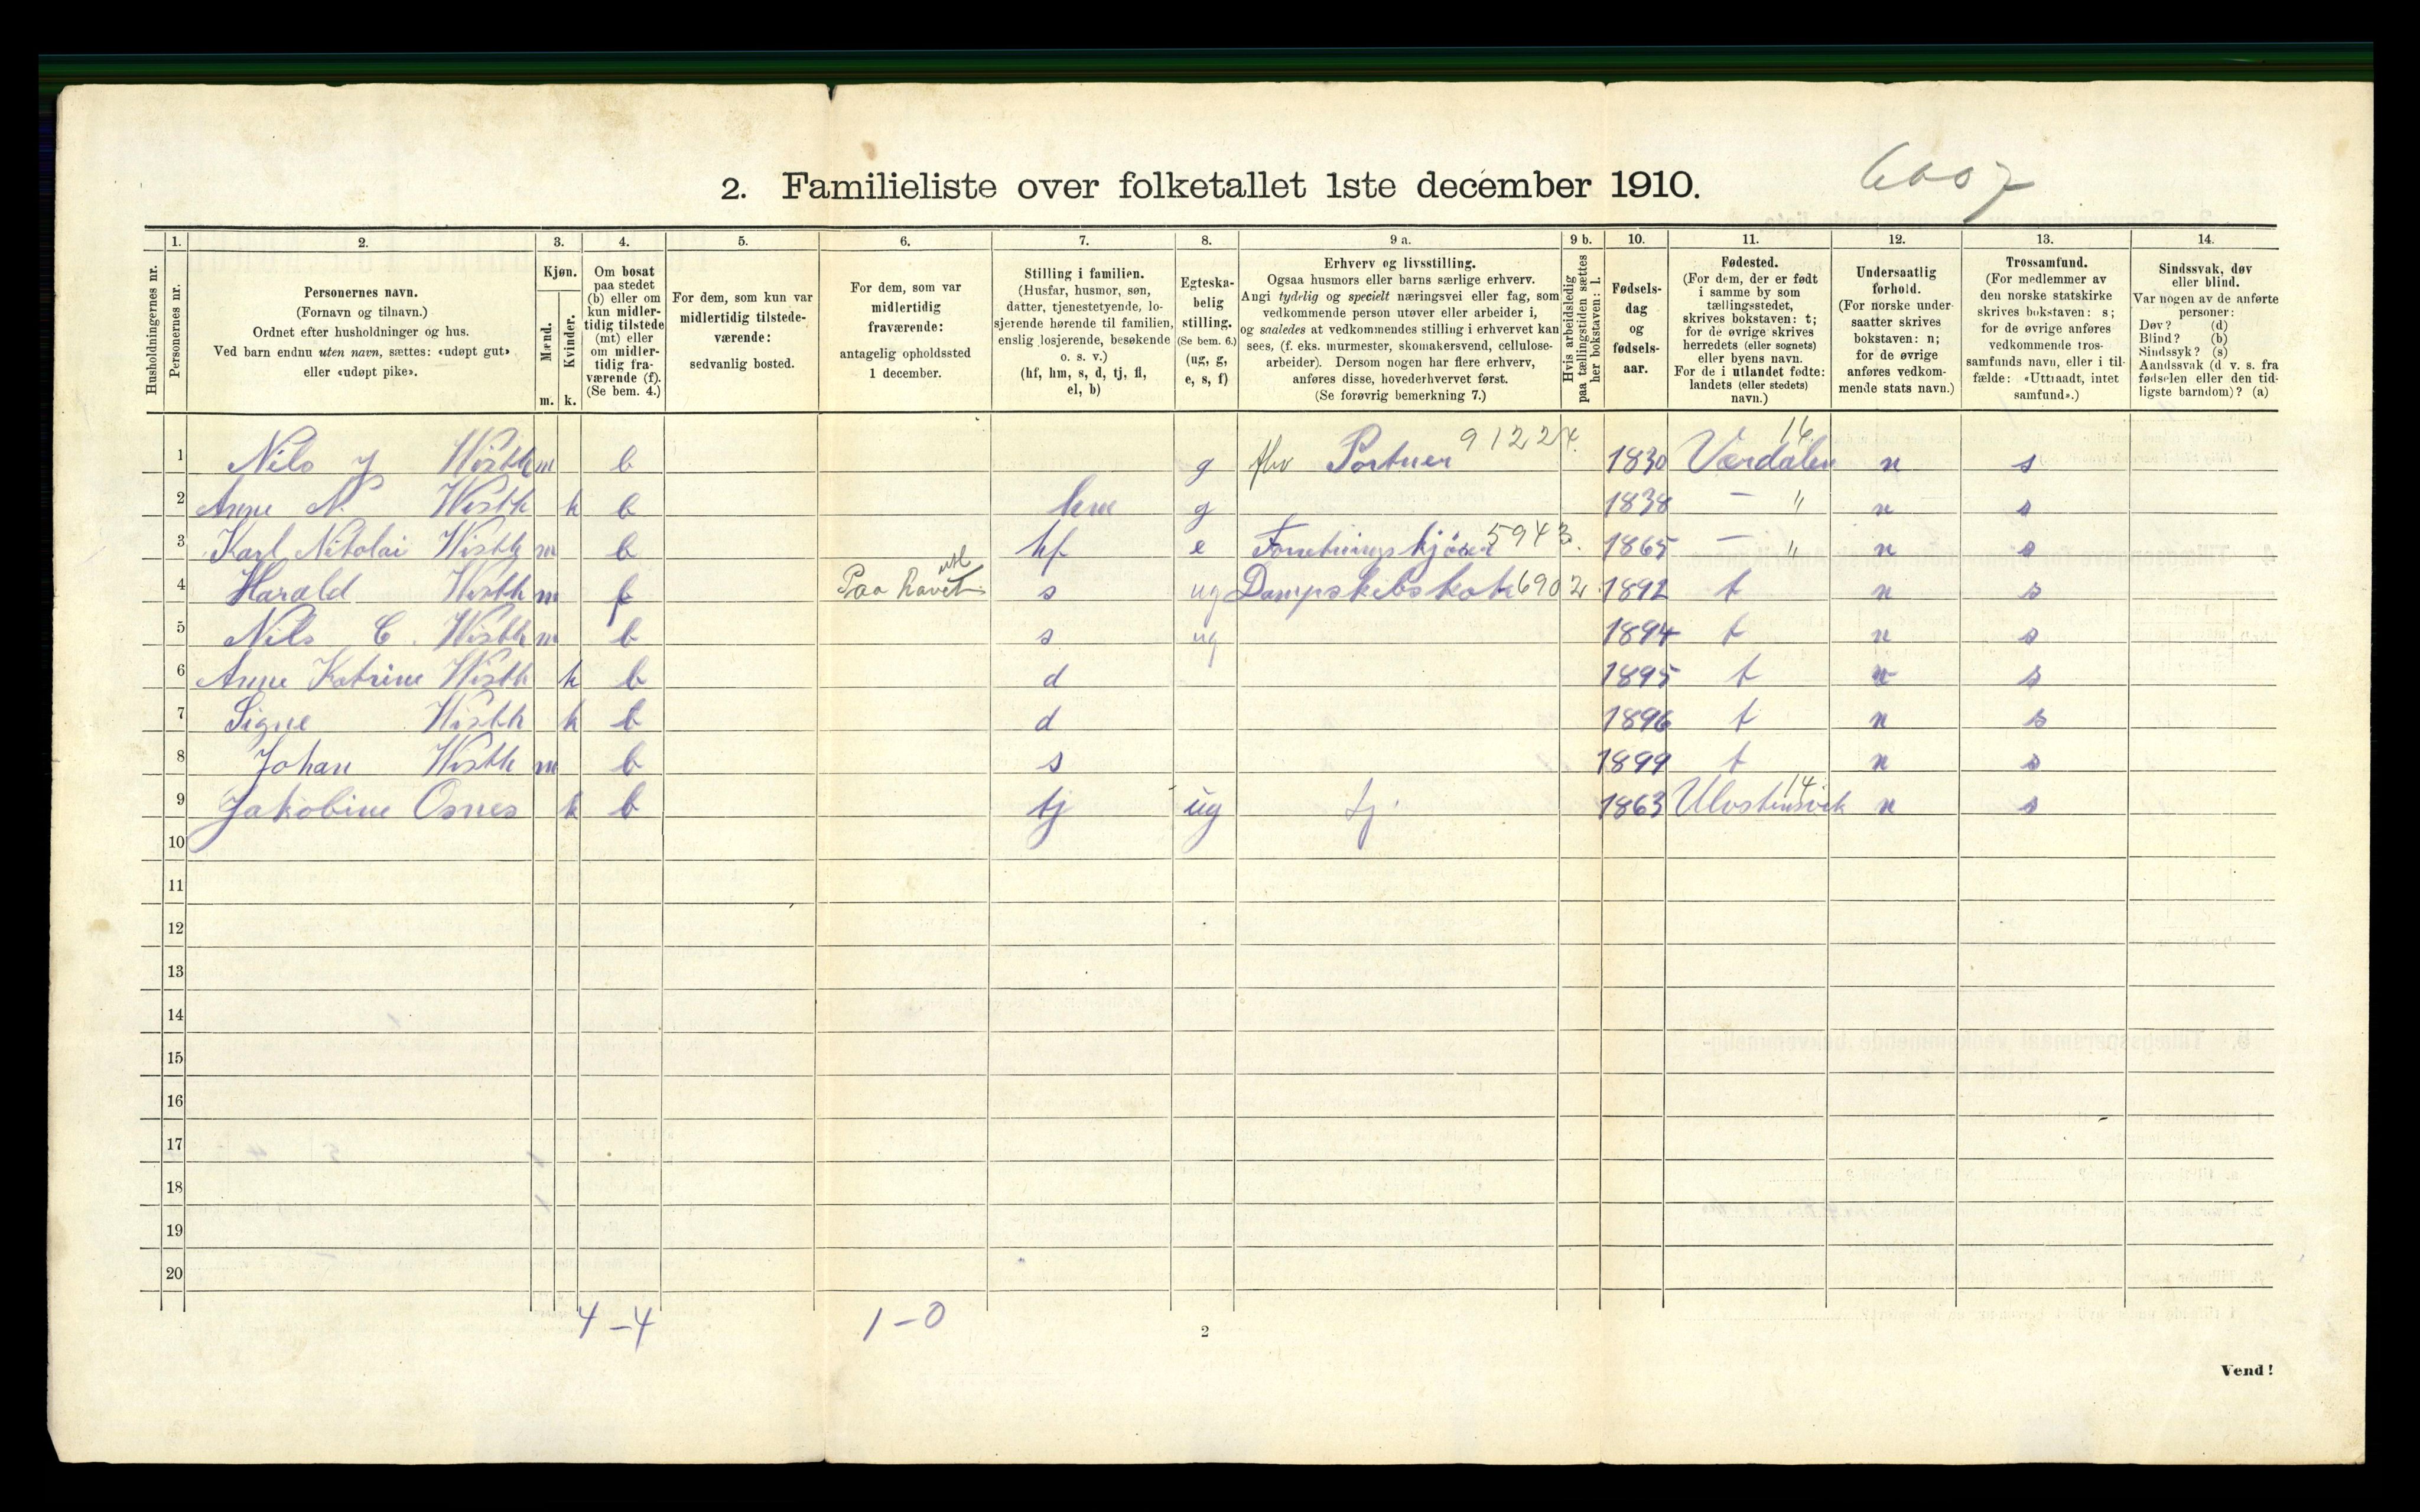 6007
2. Familieliste over folketallet 1ste december 1910.
Husholdningernes nr.
1. Personernes nr.
2. Personernes navn.
(Fornavn og tilnavn.)
Ordnet efter husholdninger og hus.
Ved barn endnu uten navn, sættes: «udøpt gut»
eller «udøpt pike».
3. Kjøn.
Mænd. m.
Kvinder. k.
4. Om bosat
paa stedet
(b) eller om
kun midler-
tidig tilstede
(mt) eller
om midler-
tidig fra-
værende (f).
(Se bem. 4.)
5. For dem, som kun var
midlertidig tilstede-
værende:
sedvanlig bosted.
6. For dem, som var
midlertidig
fraværende:
antagelig opholdssted
1 december.
7. Stilling i familien.
(Husfar, husmor, søn,
datter, tjenestetyende, lo-
sjerende hørende til familien,
enslig losjerende, besøkende
o. s. v.)
(hf, hm, s, d, tj, fl,
el, b)
8. Egteska-
belig
stilling.
(Se bem. 6.)
(ug, g,
e, s, f)
9 a. Erhverv og livsstilling.
Ogsaa husmors eller barns særlige erhverv.
Angi tydelig og specielt næringsvei eller fag, som
vedkommende person utøver eller arbeider i,
og saaledes at vedkommendes stilling i erhvervet kan
sees, (f. eks. murmester, skomakersvend, cellulose-
arbeider). Dersom nogen har flere erhverv,
anføres disse, hovederhvervet først.
(Se forøvrig bemerkning 7.)
9 b. Hvis arbeidsledig
paa tællingstiden sættes
her bokstaven: l.
10. Fødsels-
dag
og
fødsels-
aar.
11. Fødested.
(For dem, der er født
i samme by som
tællingsstedet,
skrives bokstaven: t;
for de øvrige skrives
herredets (eller sognets)
eller byens navn.
For de i utlandet fødte:
landets (eller stedets)
navn.)
12. Undersaatlig
forhold.
(For norske under-
saatter skrives
bokstaven: n;
for de øvrige
anføres vedkom-
mende stats navn.)
13. Trossamfund.
(For medlemmer av
den norske statskirke
skrives bokstaven: s;
for de øvrige anføres
vedkommende tros-
samfunds navn, eller i til-
fælde: «Uttraadt, intet
samfund».)
14. Sindssvak, døv
eller blind.
Var nogen av de anførte
personer:
Døv? (d)
Blind? (b)
Sindssyk? (s)
Aandssvak (d. v. s. fra
fødselen eller den tid-
ligste barndom)? (a)
1 Nils J Wisth m b g fhv Portner 91224. 1830 Værdalen 16 n s
2 Anne N. Wisth k b hm g 1838 — " n s
3 Karl Nikolai Wisth m b hf e Forretningskjører 5943. 1865 — " n s
4 Harald Wisth m f Paa havet utl s ug Dampskibskok 6902. 1892 t n s
5 Nils C. Wisth m b s ug 1894 t n s
6 Anne Katrine Wisth k b d 1895 t n s
7 Signe Wisth k b d 1896 t n s
8 Johan Wisth m b s 1899 t n s
9 Jakobine Osnes k b tj ug tj. 1863 Ulvstensvik 14 n s
10
11
12
13
14
15
16
17
18
19
20
4 – 4 1 – 0
2
Vend!